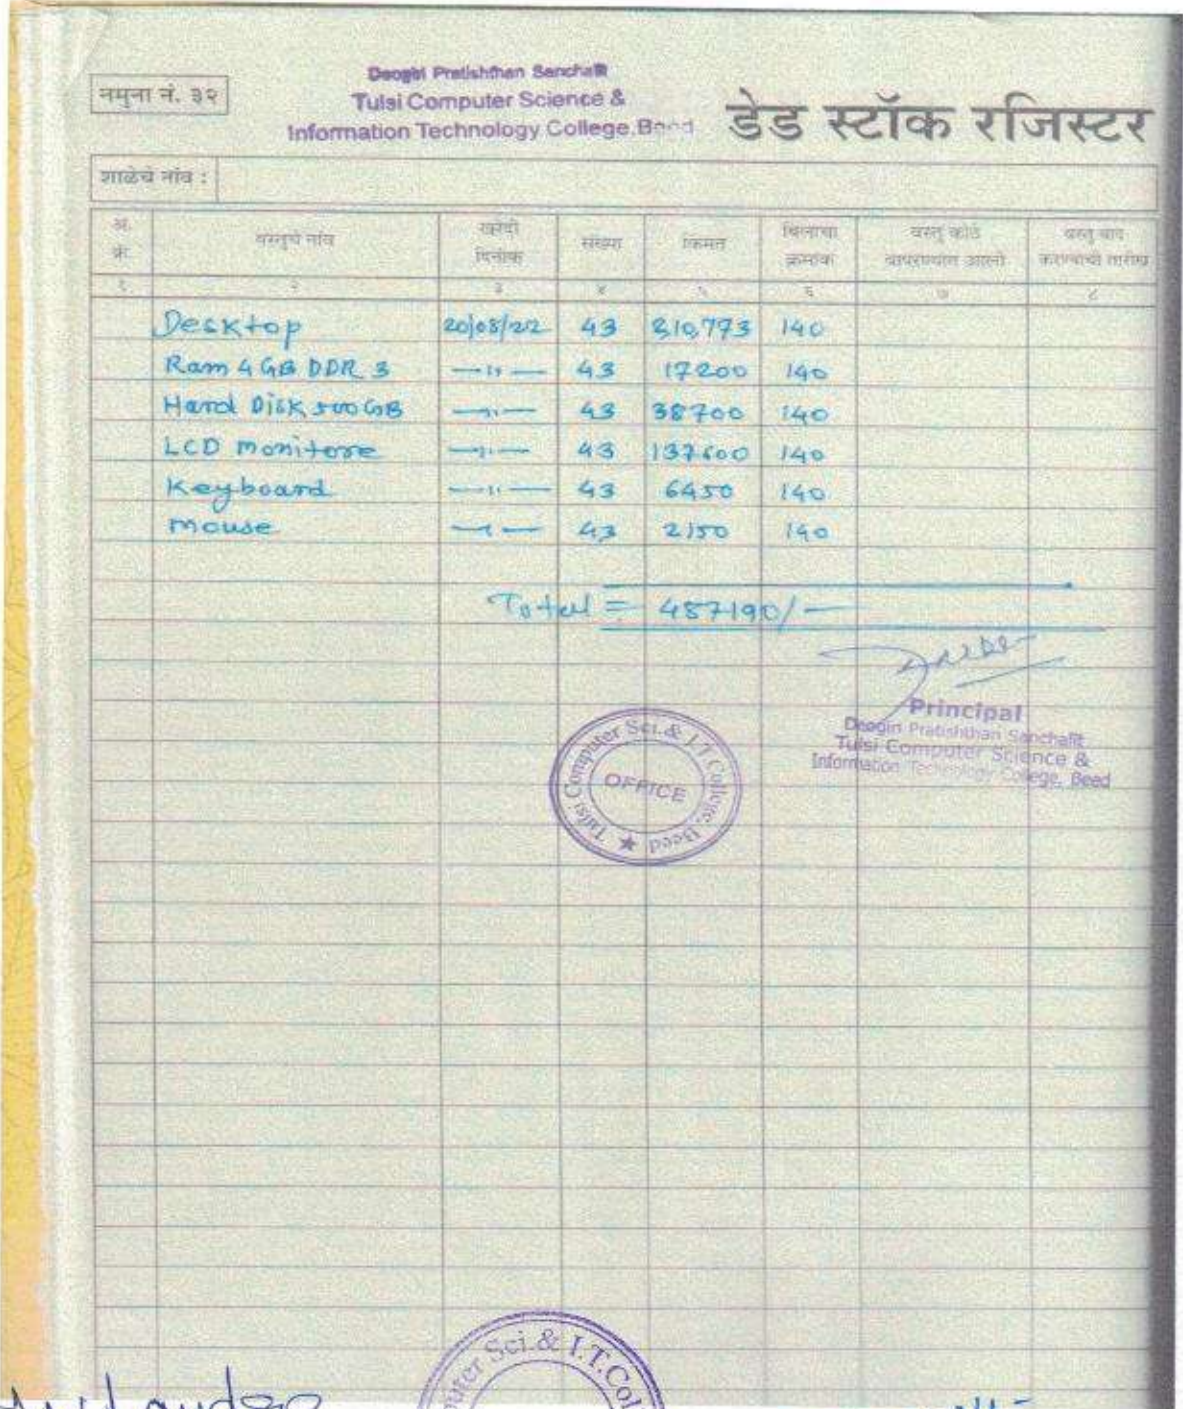 नमुना नं. ३२
Deogiri Pratishthan Sanchalit
Tulsi Computer Science &
Information Technology College, Beed
डेड स्टॉक रजिस्टर
शाळेचे नांव :
अ. क्रं. वस्तुचे नांव खरेदी दिनांक संख्या किंमत बिलाचा क्रमांक वस्तु कोठे वापरण्यात आली वस्तु बाद करण्याची तारीख
१ २ ३ ४ ५ ६ ७ ८
Desktop 20/08/22 43 140
Ram 4 GB DDR 3 —"— 43 17200 140
Hard Disk 500 GB —"— 43 38700 140
LCD monitore —"— 43 137600 140
Keyboard —"— 43 6450 140
mouse —"— 43 2150 140
Total = 487190/—
Principal
Deogiri Pratishthan Sanchalit
Tulsi Computer Science &
Information Technology College, Beed
Tulsi Computer Sci. & I.T. College, Beed
OFFICE
puter Sci. & I.T. Col